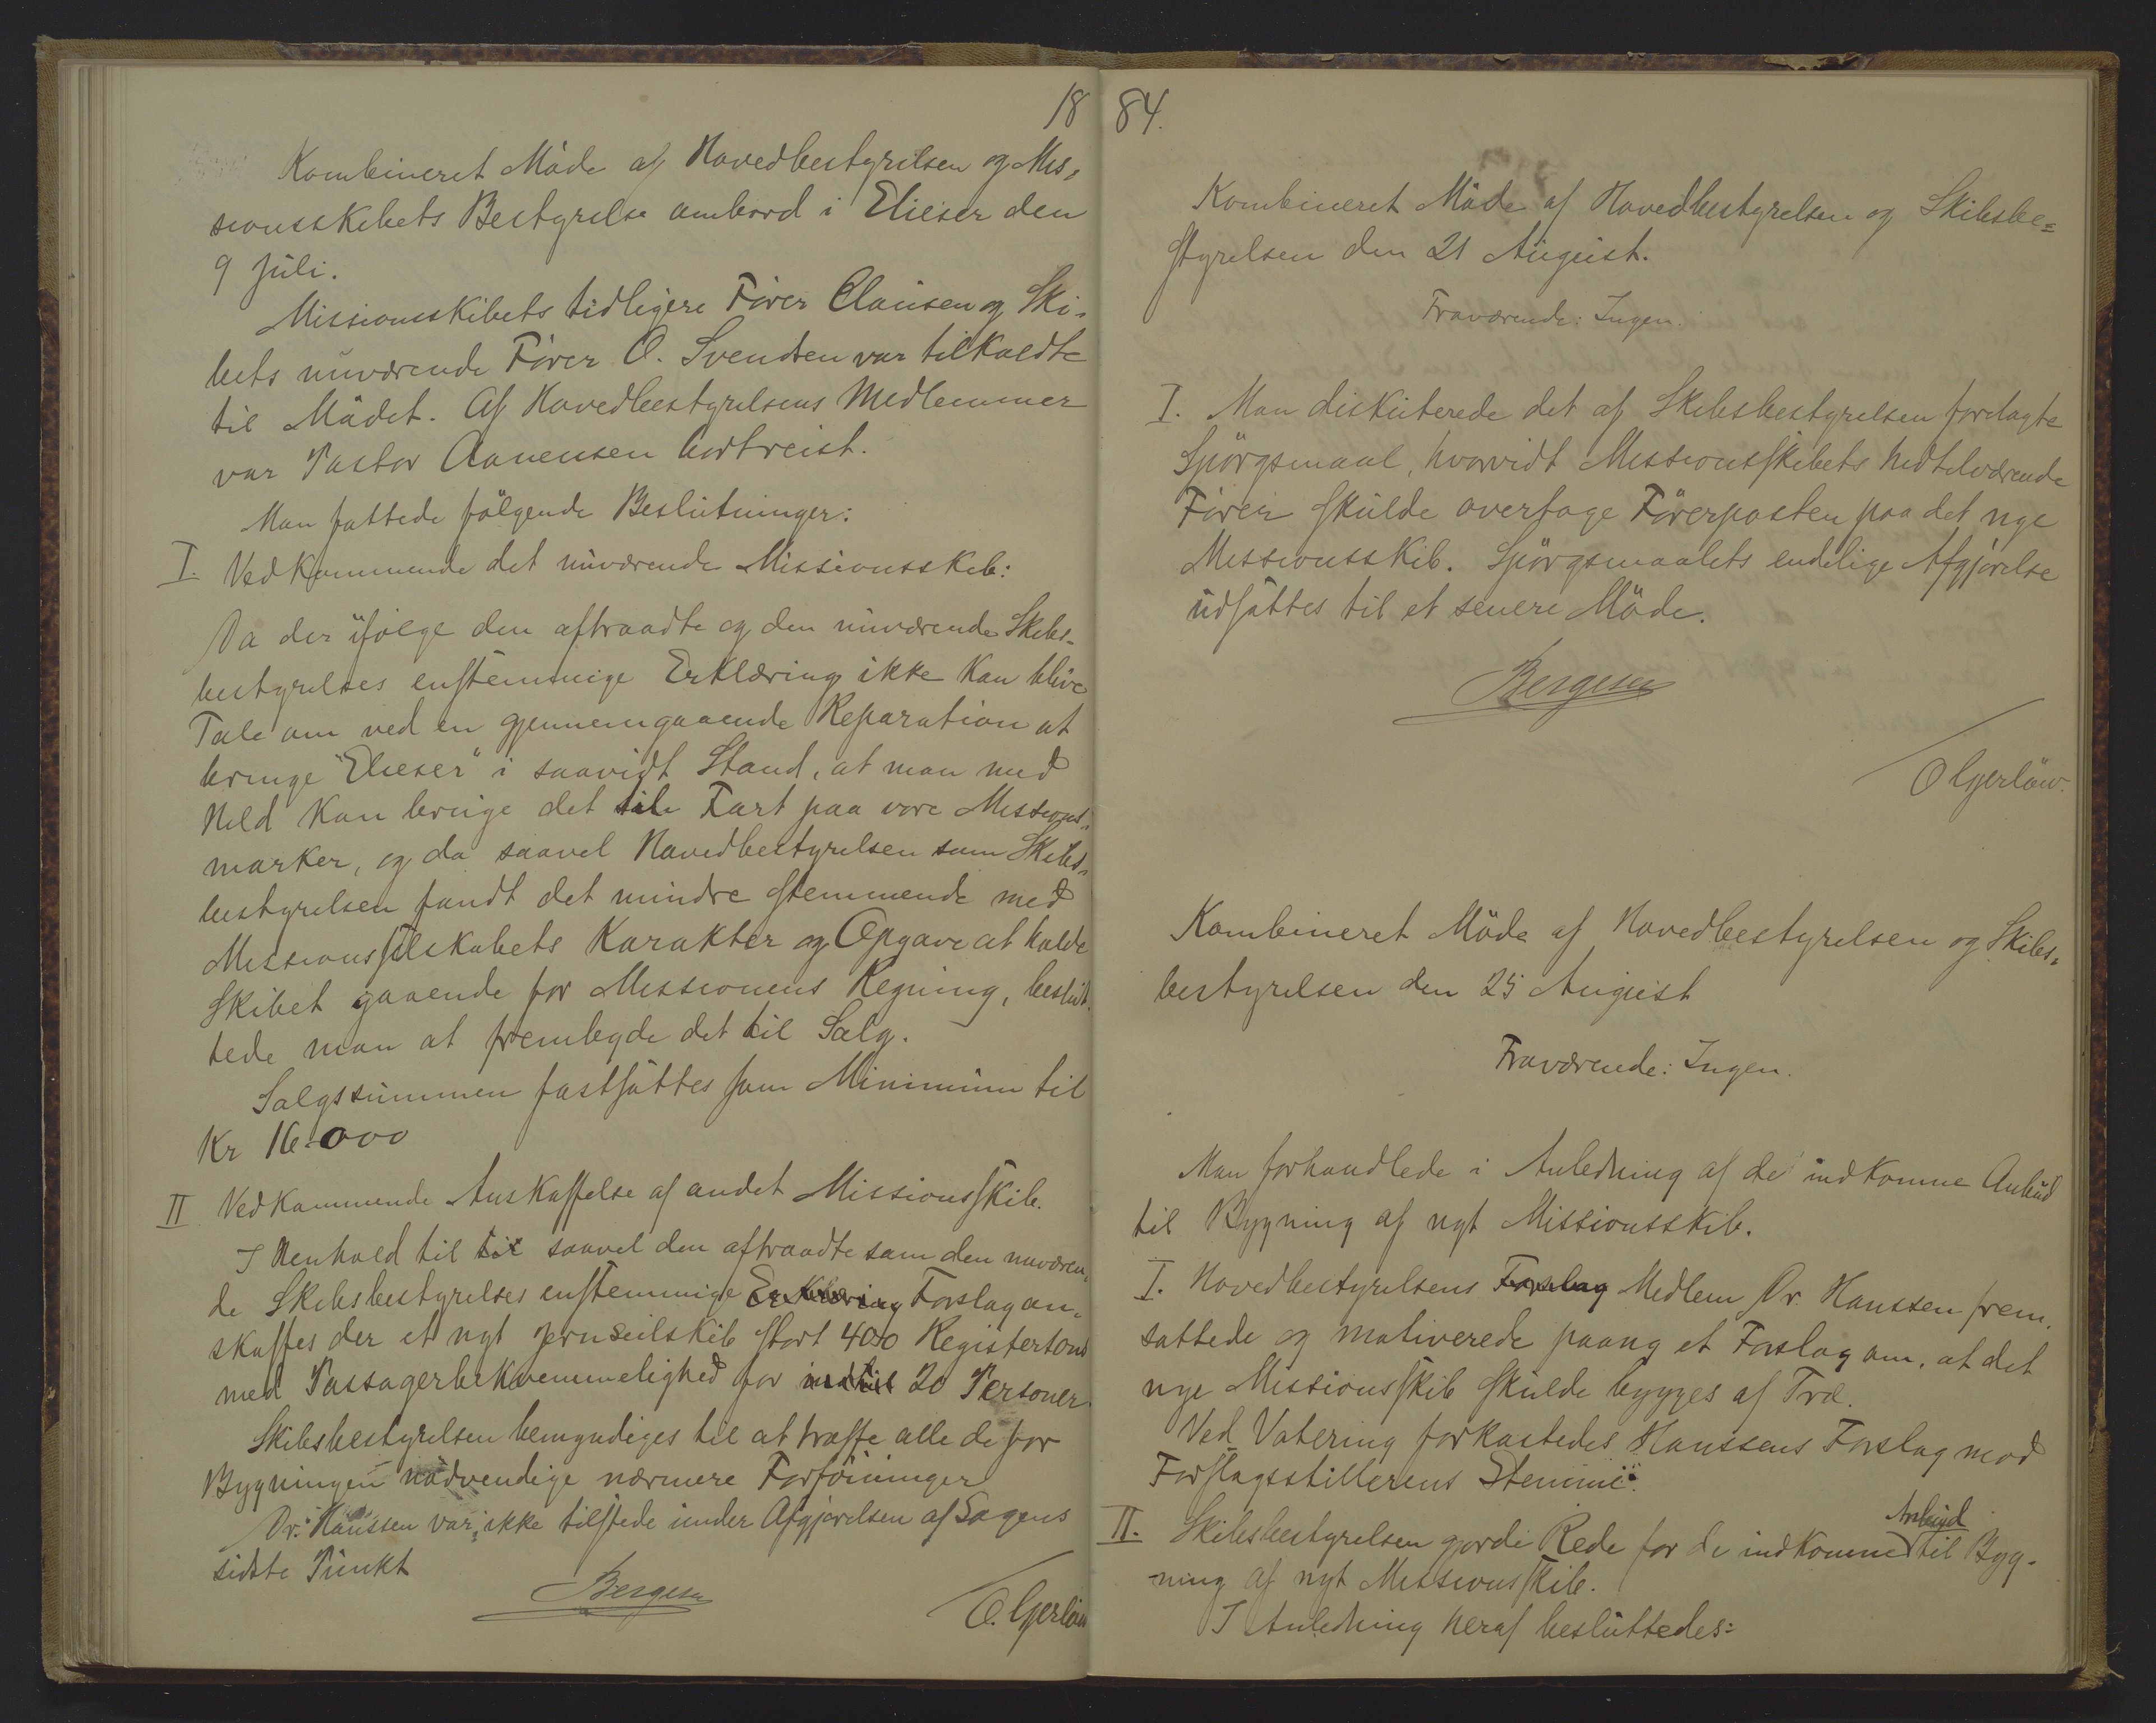 18
Kombineret Møde af Hovedbestyrelsen og Mis=
sionsskibets Bestyrelse ombord i Elieser den
9 Juli.
Missionsskibets tidligere Fører Clausen og Ski=
bets nuværende Fører O. Svendsen var tilkaldte
til Mødet. Af Hovedbestyrelsens Medlemmer
var Pastor Aanensen bortreist.
Man fattede følgende Beslutninger:
I. Vedkommende det nuværende Missionsskib:
Da der ifølge den aftraadte og den nuværende Skibs=
bestyrelses enstemmige Erklæring ikke kan blive
Tale om ved en gjennemgaaende Reparation at
bringe "Elieser" i saavidt Stand, at man med
Held kan bruge det til Fart paa vore Missions=
marker, og da saavel Hovedbestyrelsen som Skibs=
bestyrelsen fandt det mindre stemmende med
Missionsselskabets Karakter og Opgave at holde
Skibet gaaende for Missionens Regning, beslut=
tede man at frembyde det til Salg.
Salgssummen fastsættes som Minimum til
Kr 16.000
II Vedkommende Anskaffelse af andet Missionsskib.
I Henhold til til saavel den aftraadte som den nuværen=
de Skibsbestyrelses enstemmige Erklæring Forslag an=
skaffes der et nyt Jernseilskib stort 400 Registertons
med Passagerbekvemmelighed for indtil 20 Personer.
Skibsbestyrelsen bemyndiges til at træffe alle de for
Bygningen nødvendige nærmere Forføininger
Dr. Hanssen var ikke tilstede under Afgjørelsen af Sagens
sidste Punkt
Bergesen
O. Gjerløw
84.
Kombineret Møde af Hovedbestyrelsen og Skibsbe=
styrelsen den 21 August.
Fraværende: Ingen.
I. Man diskuterede det af Skibsbestyrelsen forelagte
Spørgsmaal, hvorvidt Missionsskibets hidtilværende
Fører skulde overtage Førerposten paa det nye
Missionsskib. Spørgsmaalets endelige Afgjørelse
udsættes til et senere Møde.
Bergesen
O Gjerløw.
Kombineret Møde af Hovedbestyrelsen og Skibs=
bestyrelsen den 25 August
Fraværende: Ingen.
Man forhandlede i Anledning af de indkomne Anbud
til Bygning af nyt Missionsskib.
I. Hovedbestyrelsens Forslag Medlem Dr. Hanssen frem=
sattede og motiverede paany et Forslag om, at det
nye Missionsskib skulde bygges af Træ.
Ved Votering forkastedes Hanssens Forslag mod
Forslagsstillerens Stemme.
II. Skibsbestyrelsen gjorde Rede for de indkomne Anbud til Byg=
ning af nyt Missionsskib.
I Anledning heraf besluttedes: